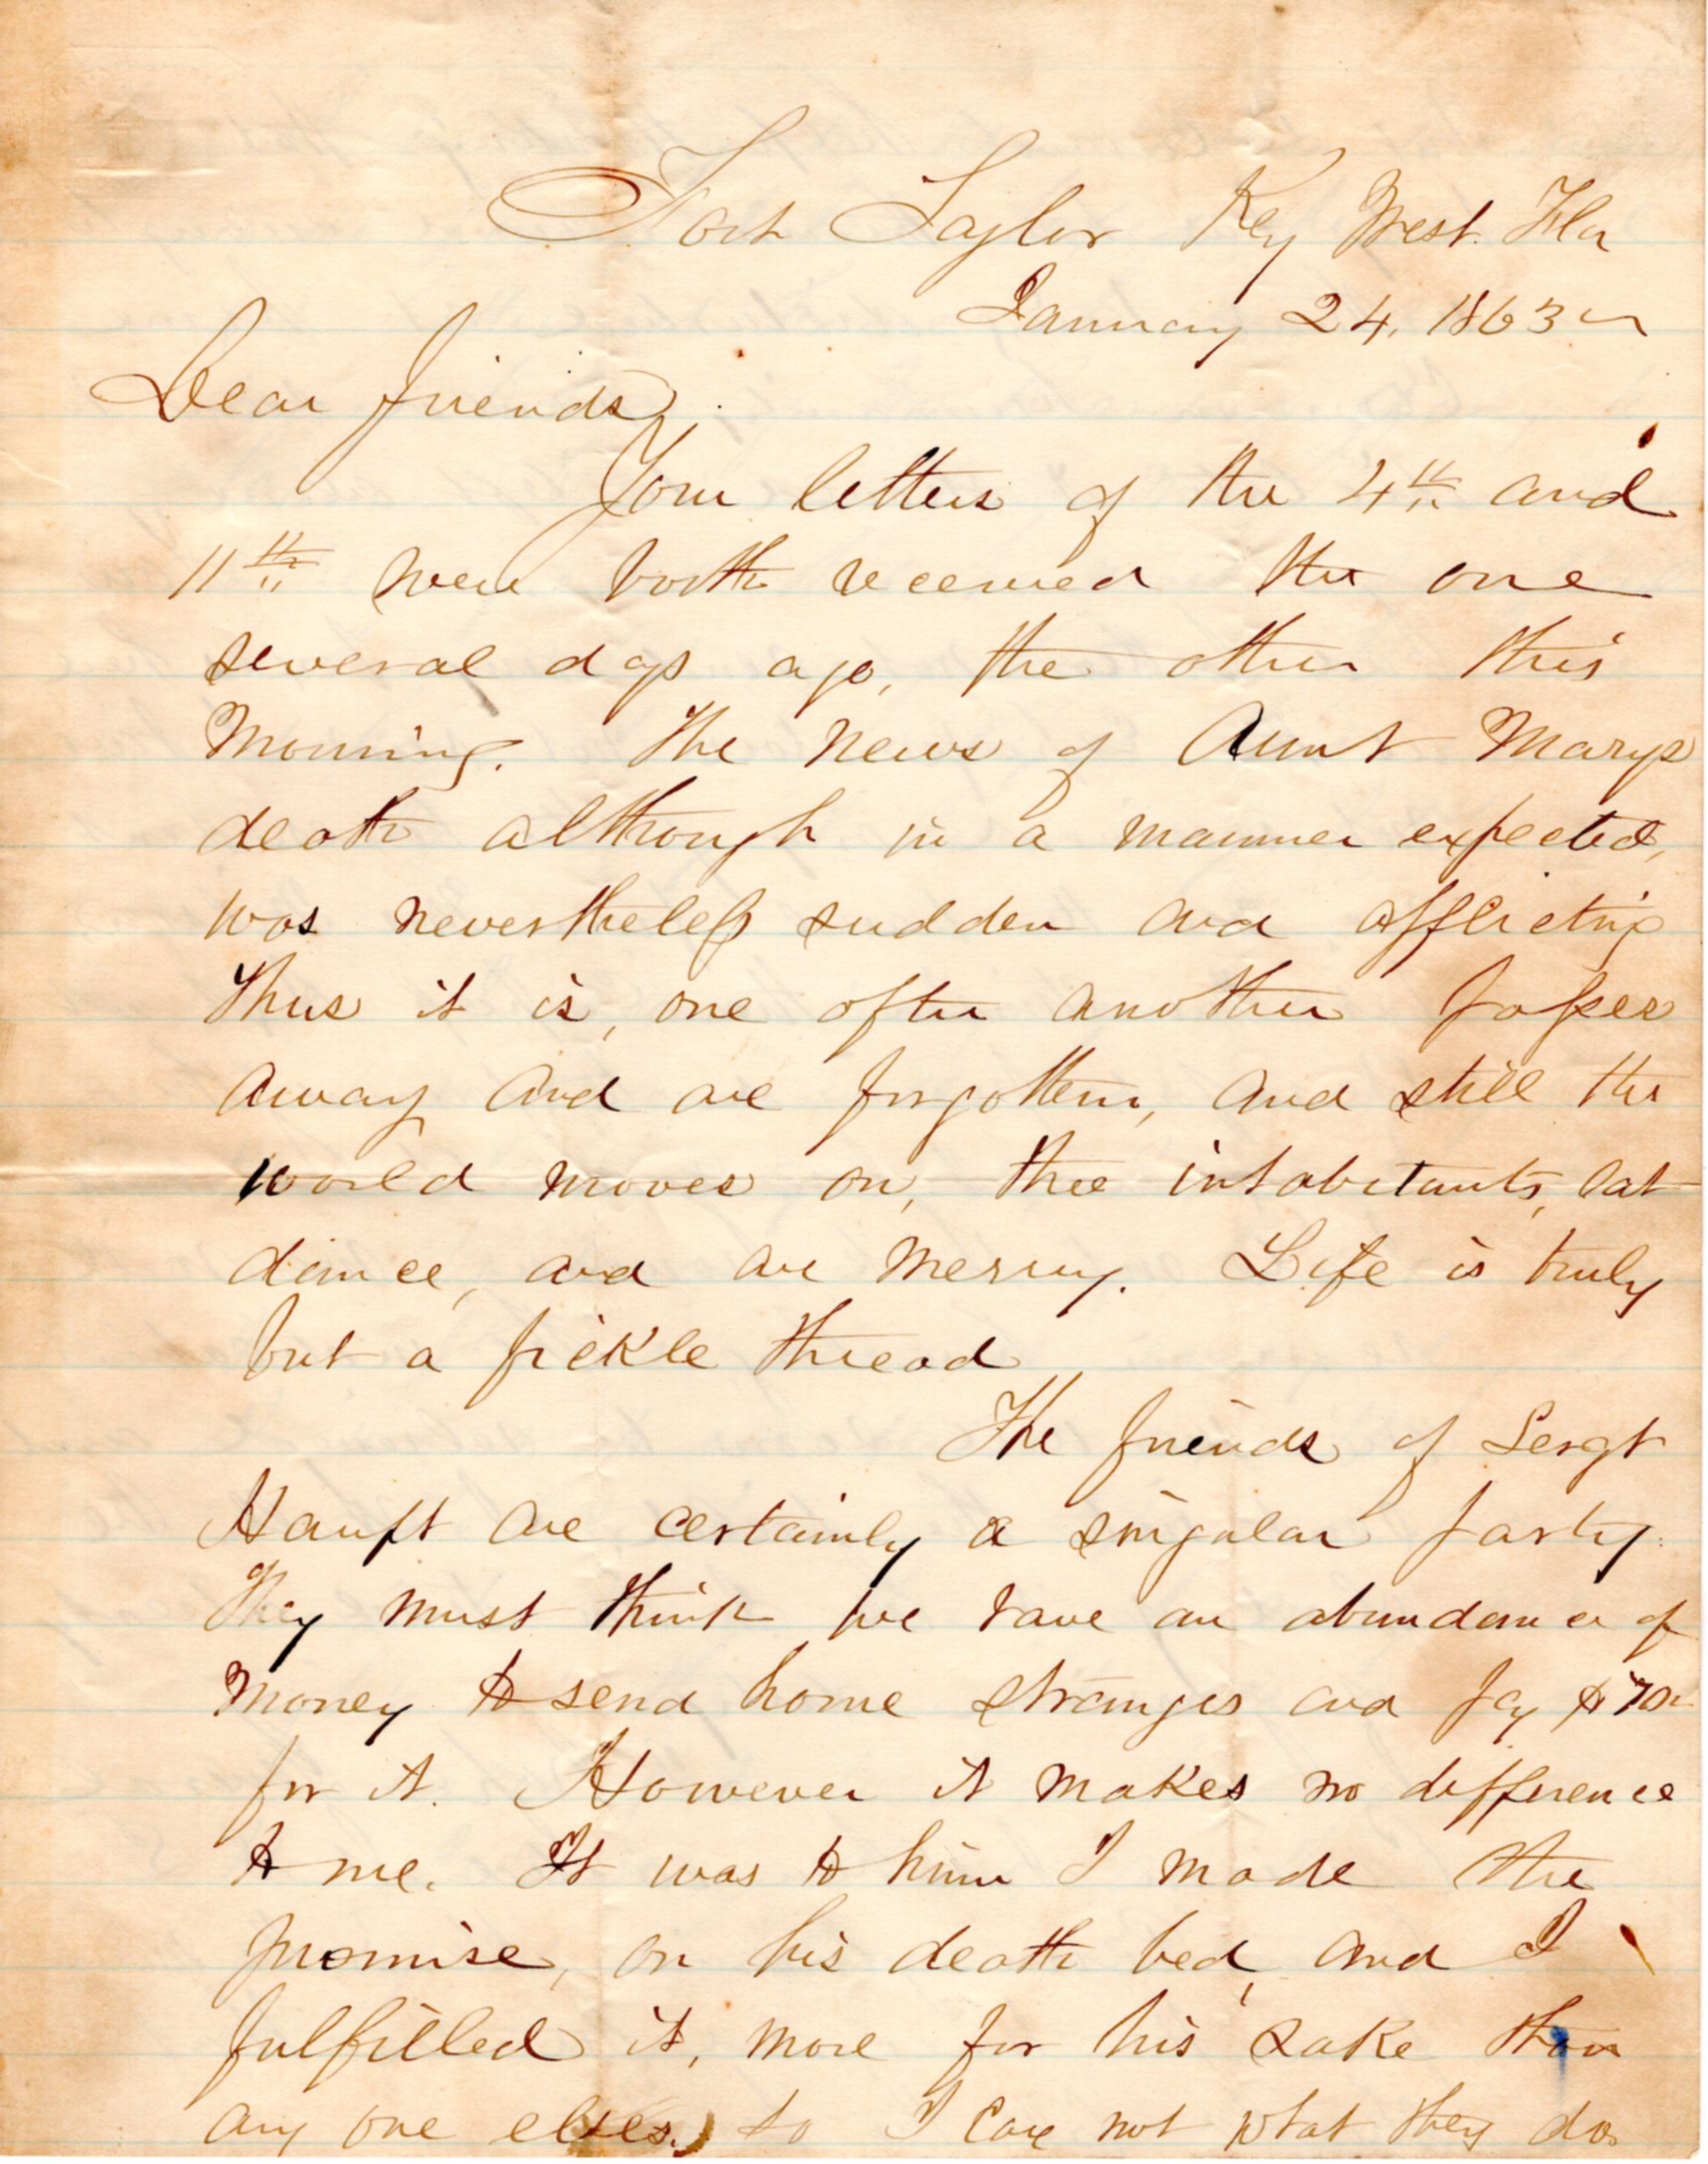 Fort Taylor Key West. Fla
January 24, 1863
Dear friends,
Your letters of the 4th and
11th were both received the one
several days ago, the other this
morning. The news of Aunt Marys
death although in a manner expected,
was nevertheless sudden and afflicting
Thus it is, one after another passes
away and are forgotten, and still the
world moves on, the inhabitants, eat
dance, and are merry. Life is truly
but a fickle thread
The friends of Sergt
Hauft are certainly a singular party.
They must think we have an abundance of
money to send home stranges and pay $70
for it. However it makes no difference
to me. It was to him I made the
promise, on his death bed, and I
fulfilled it, more for his sake than
any one elses. so I care not what they do.